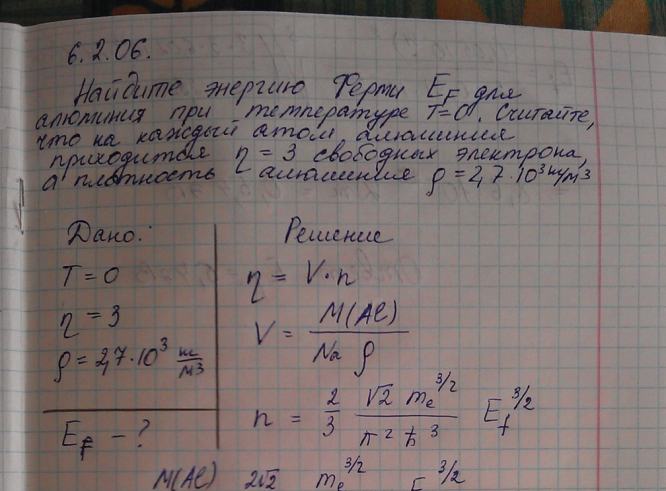 6.2.06.
Найдите энергию Ферми E_F для
алюминия при температуре T=0. Считайте,
что на каждый атом алюминия
приходится η = 3 свободных электрона,
а плотность алюминия ρ = 2,7·10³ кг/м³
Дано:
T = 0
η = 3
ρ = 2,7·10³ кг/м³
E_F - ?
Решение
η = V·n
V = M(Al) / (Na ρ)
n = 2/3 √2 m_e^3/2 / (π² ħ³) E_f^3/2
M(Al) 2√2 m_e^3/2 E^3/2